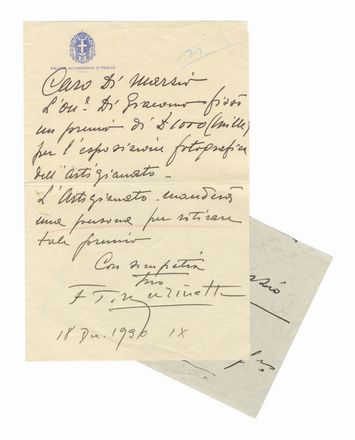 REALE ACCADEMIA D'ITALIA
Caro Di Marzio
L'on. Di Giacomo fissò
un premio di £ 1000 (mille)
per l'esposizione fotografica
dell'Artigianato -
L'Artigianato manderà
una persona per ritirare
tale premio
Con simpatia
tuo
F T Marinetti
18 Dic. 1930 IX